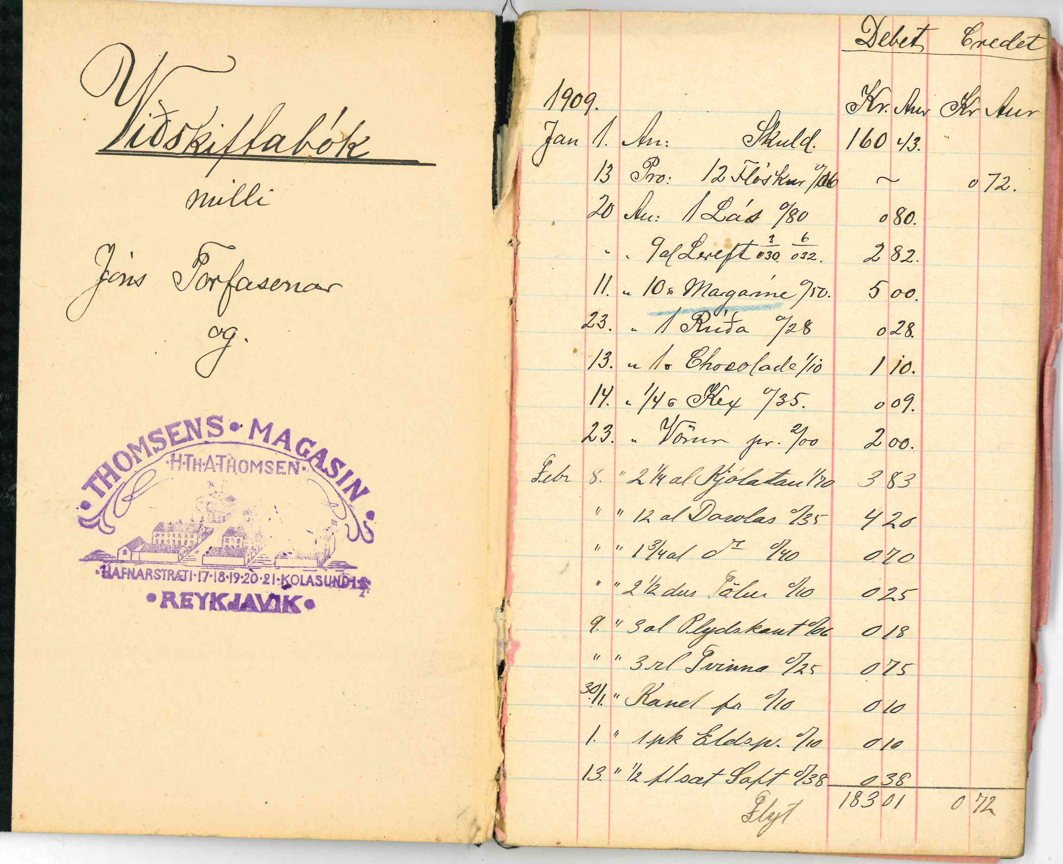 Viðskiftabók
milli
Jóns Torfasonar
og.
THOMSENS • MAGASIN
H•TH•A•THOMSEN
HAFNARSTRÆTI•17•18•19•20•21•KOLASUND 1
• REYKJAVIK •
Debet Credet
1909. Kr. Aur Kr Aur
Jan 1. An: Skuld. 160 43.
13 Pro: 12 Flöskur 0/06 ~ 0 72.
20 An: 1 Lás 0/80 0 80.
" " 9 al Lereft 3/030 6/032. 2 82.
11. " 10 Magarine 0/50. 5 00.
23. " 1 Rúða 0/28 0 28.
13. " 1 Chocolade 1/10 1 10.
14. " 1/4 Kex 0/35. 0 09.
23. " Vörur pr. 2/00 2 00.
Febr 8. " 2 1/4 al Kjólatau 1/70 3 83
" " 12 al Dowlas 0/35 4 20
" " 1 3/4 al do 0/40 0 70
" " 2 1/2 dus Tölur 0/10 0 25
9. " 3 al Plydskant 0/06 0 18
" " 3 rl Tvinna 0/25 0 75
30/1 " Kanel fr 0/10 0 10
1. " 1 pk Eldsp. 0/10 0 10
13. " 1/2 fl sæt Saft 0/38 0 38
Flyt 183 01 0 72